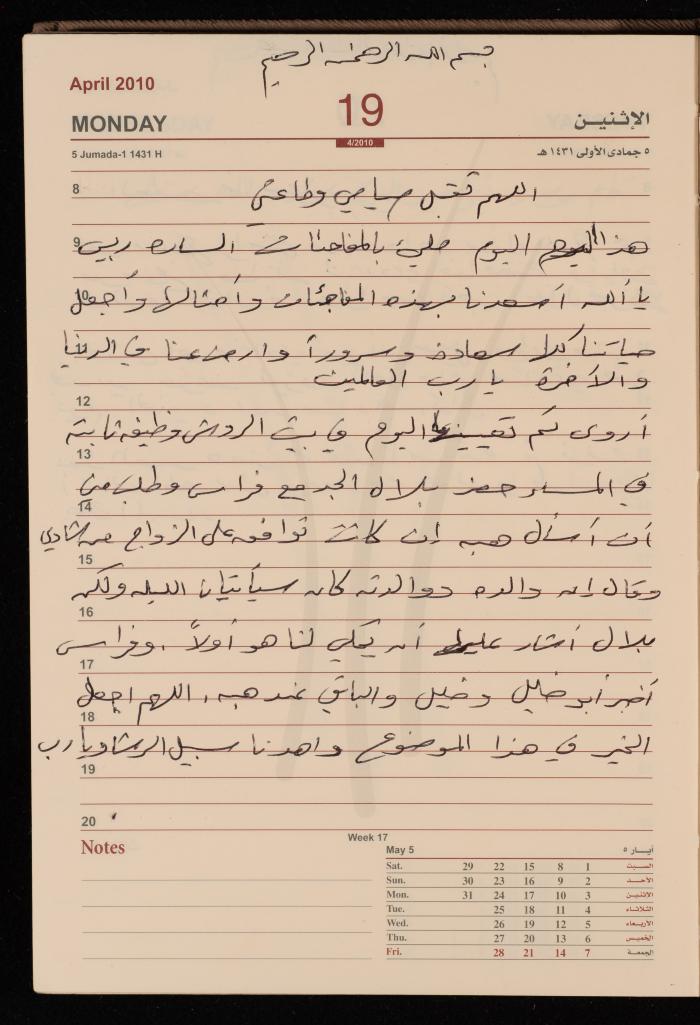 بسم الله الرحمن الرحيم
April 2010
MONDAY
19
4/2010
الإثنين
5 Jumada-1 1431 H
٥ جمادى الأولى ١٤٣١ هـ
8
اللهم تقبل صيامي وطاعتي
9
هذا اليوم مليئ بالمفاجئات الساره ربي
10
يا ألله أسعدنا بهذه المفاجئات وأمثالها وأجعل
حياتنا كلا سعادة وسروراً وارض عنا في الدنيا
والآخرة يا رب العالمين
12
أروى تم تعيينها اليوم في بيت الروش وظيفه ثابته
13
في المساء حضر بلال الجد مع فراس وطلب من
14
أن أسأل هبه إن كانت توافق على الزواج من شادي
15
وقال إن والده ووالدته كان سيأتيان الليله ولكن
16
بلال أشار عليه أن يحكي لنا هو أولاً . وفراس
17
أخبر أبو خليل وخليل والباقي عند هبه . اللهم اجعل
18
الخير في هذا الموضوع واهدنا سبيل الرشاد يا رب
19
20
Notes
Week 17
May 5
أيـــار ٥
Sat. 29 22 15 8 1 السبت
Sun. 30 23 16 9 2 الأحد
Mon. 31 24 17 10 3 الاثنين
Tue. 25 18 11 4 الثلاثاء
Wed. 26 19 12 5 الأربعاء
Thu. 27 20 13 6 الخميس
Fri. 28 21 14 7 الجمعة